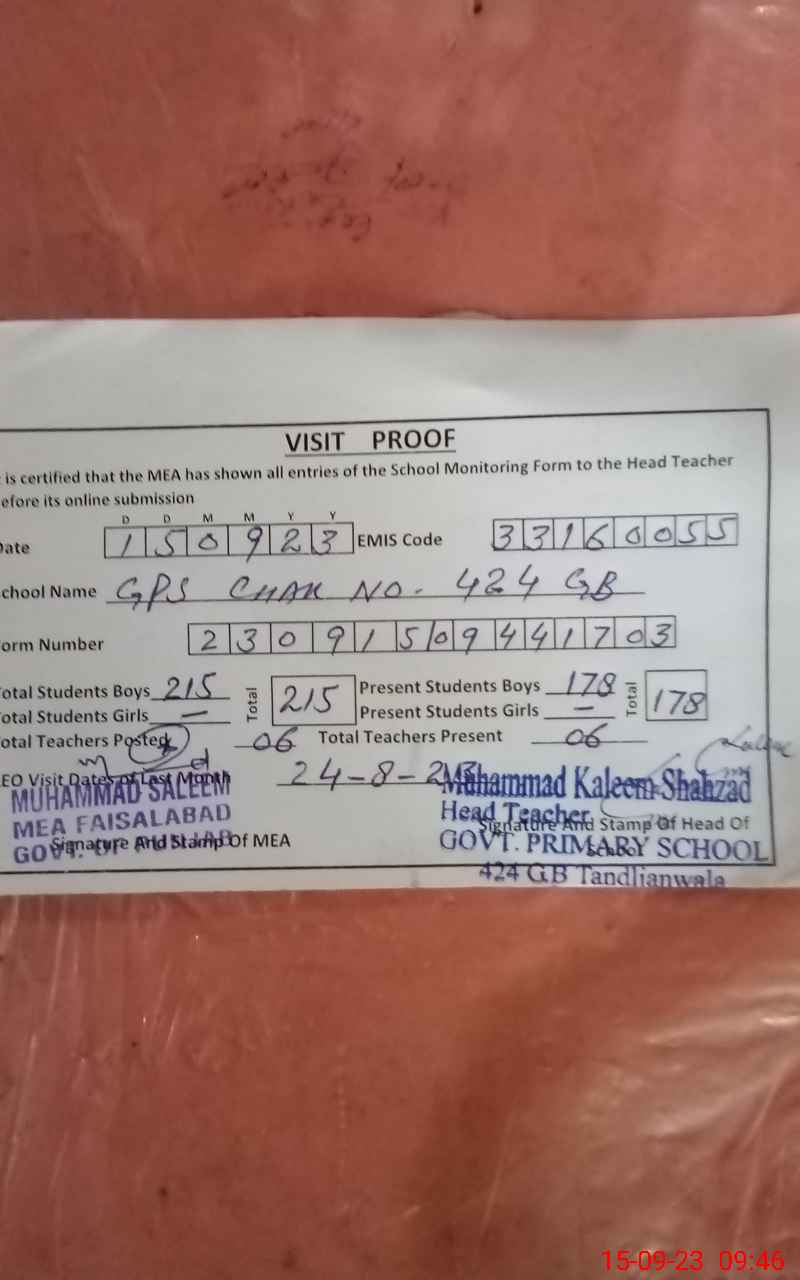 VISIT PROOF
is certified that the MEA has shown all entries of the School Monitoring Form to the Head Teacher
efore its online submission
D D M M Y Y
Date 150923 EMIS Code 33160055
chool Name GPS CHAK NO. 424 GB
orm Number 230915094441703
otal Students Boys 215 Total 215 Present Students Boys 178 Total 178
otal Students Girls — Present Students Girls —
otal Teachers Posted 06 Total Teachers Present 06
EO Visit Dates of Last Month 24-8-23
MUHAMMAD SALEEM
MEA FAISALABAD
GOVT. OF PUNJAB
Signature And Stamp Of MEA
Muhammad Kaleem Shahzad
Head Teacher
Signature And Stamp Of Head Of
GOVT. PRIMARY SCHOOL
424 GB Tandlianwala
15-09-23 09:46